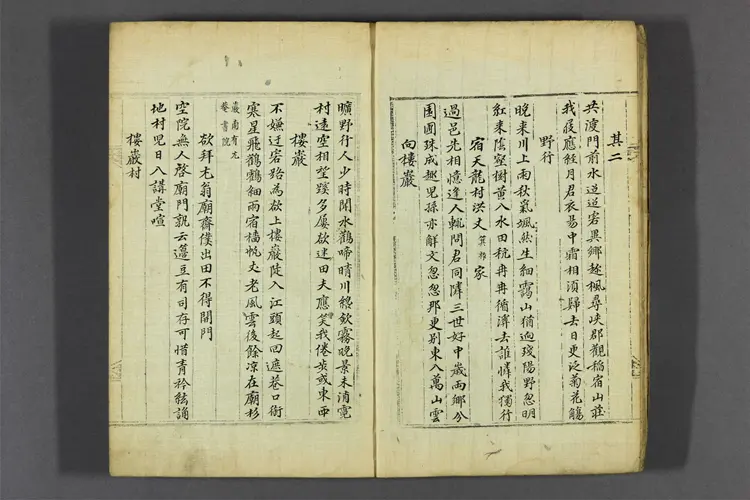 其二
共渡門前水迢迢宕異鄉趂楓尋峽郡觀稻宿山莊
我屐應經月君衣易中霜相須歸去日更泛菊花觴
野行
晚來川上雨秋氣颯然生細靄山猶逈殘陽野忽明
紅來陰壑樹黃入水田秔冉冉循溝去誰憐我獨行
宿天龍村洪丈箕都家
過邑先相憶逢人輒問君同隣三世好中歲兩鄉分
園圃珠成趣兒孫亦解文忽忽那更別東入萬山雲
向樓巖
曠野行人少時聞水鸛啼晴川穩欽霧晚景未消霓
村遠空相望蹊多屢欲迷田夫應笑我倦步或東西
樓巖
不嫌迂宕路為欲上樓巖陡入江頭起回遮巷口銜
寒星飛鸛鶴細雨宿檣帆丈老風雲後餘凉在廟杉
巖南有尤
菴書院
欲拜尤翁廟齋僕出田不得開門
空院無人啓廟門孰云籩豆有司存可惜青衿絃誦
地村兒日入講堂喧
樓巖村